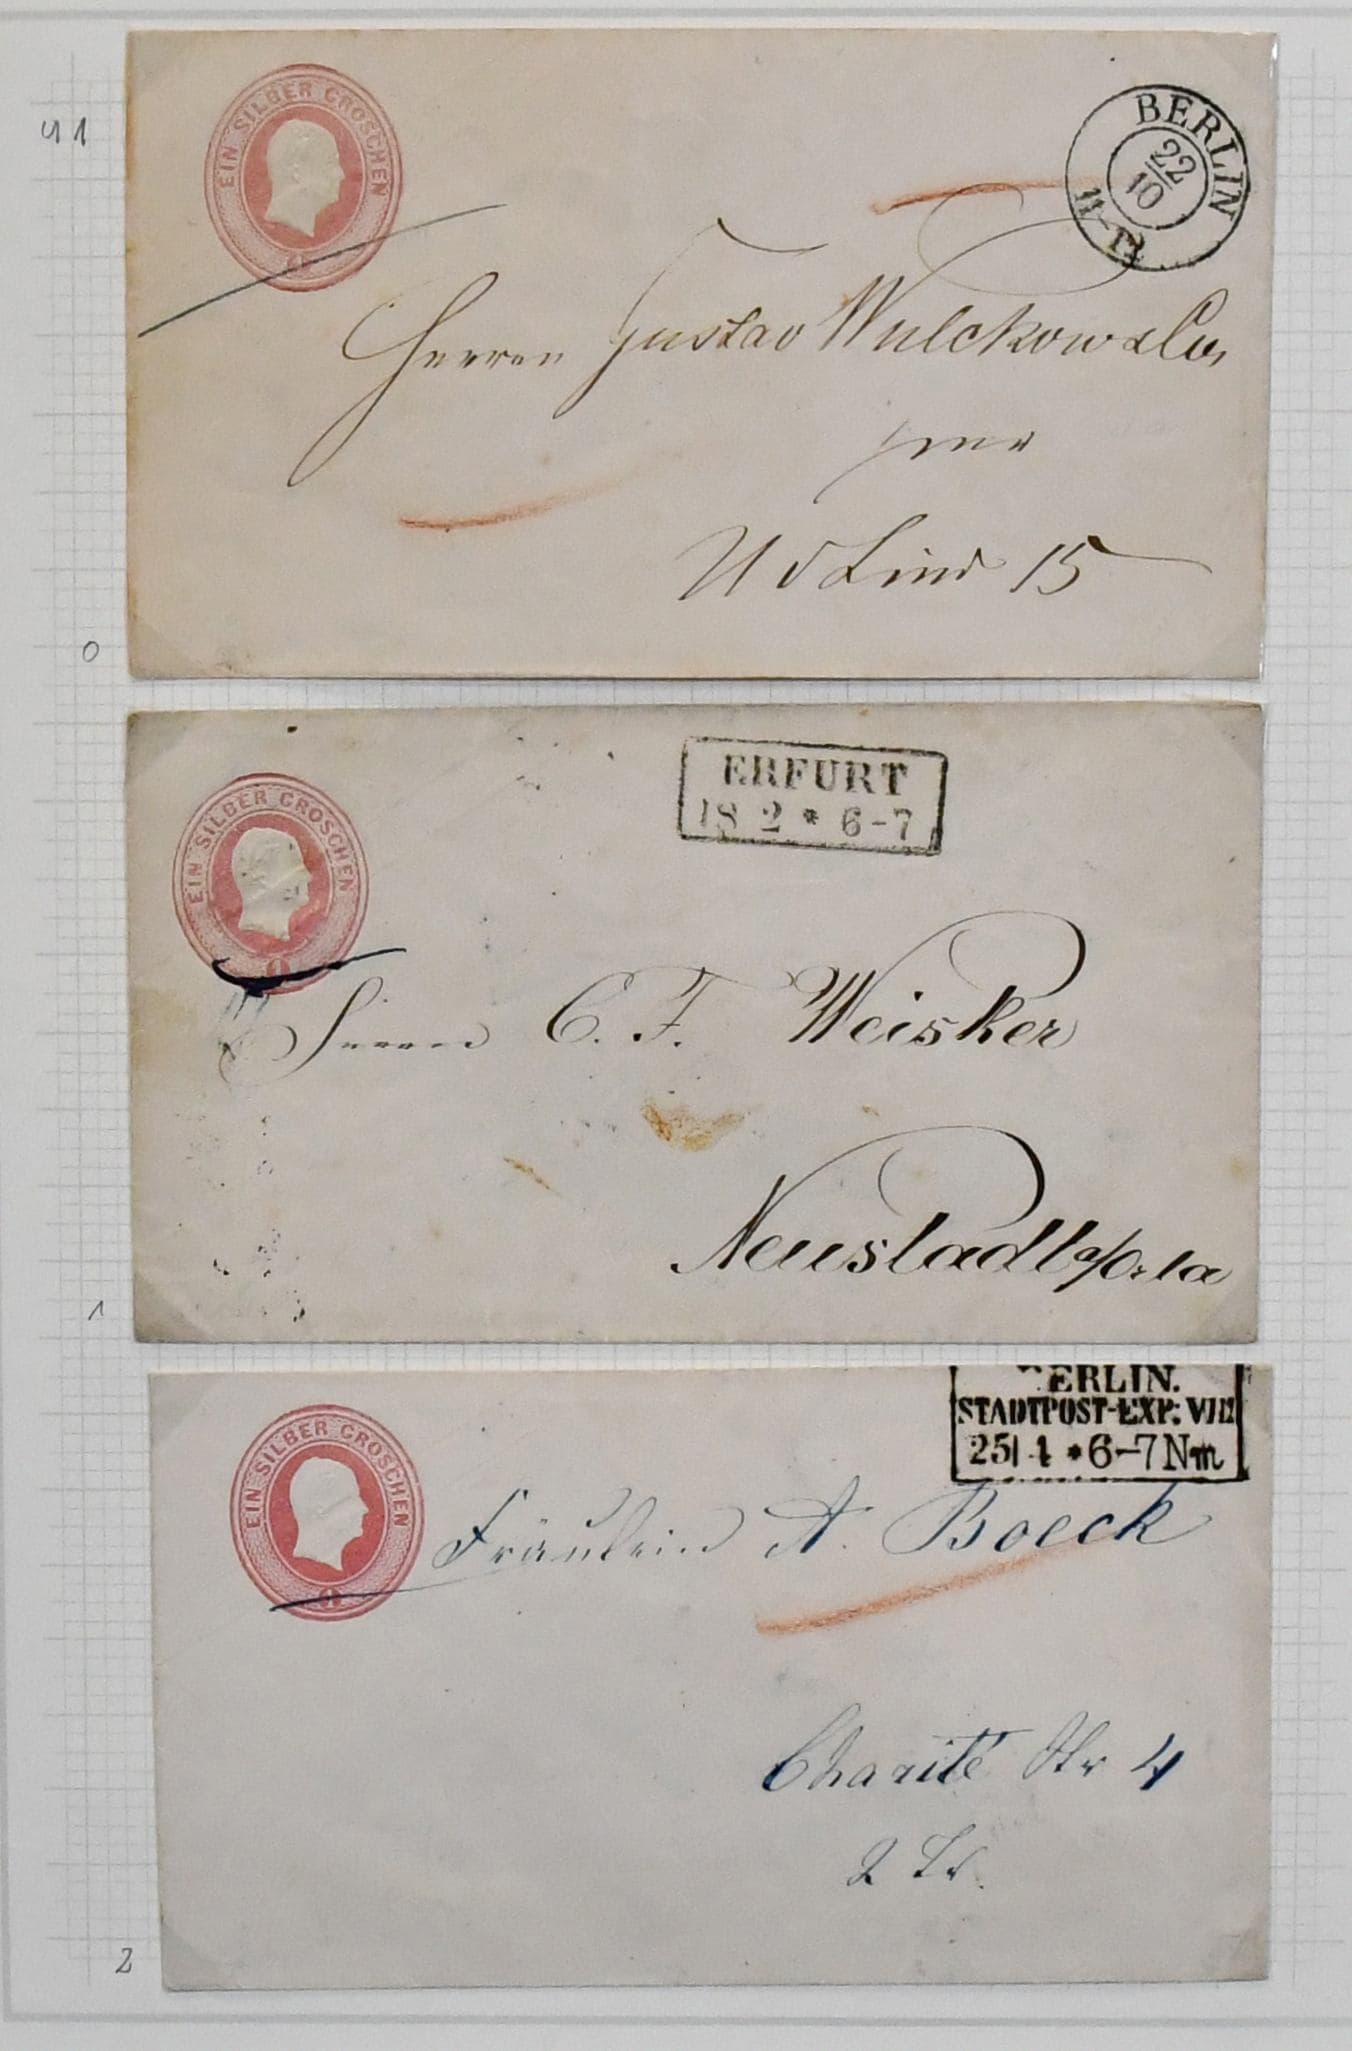 41
EIN SILBER GROSCHEN
BERLIN
22
10
11-12
Herren Gustav Wulckow & Co,
hier
U d Lind 15
0
EIN SILBER GROSCHEN
1
ERFURT
18 2 * 6-7
Herrn C. F. Weisker
Neustadt a/Orla
1
EIN SILBER GROSCHEN
1
BERLIN.
STADTPOST-EXP: VIII
25/4 * 6-7 Nm
Fräulein A. Boeck
Charité Str 4
2 Tr.
2